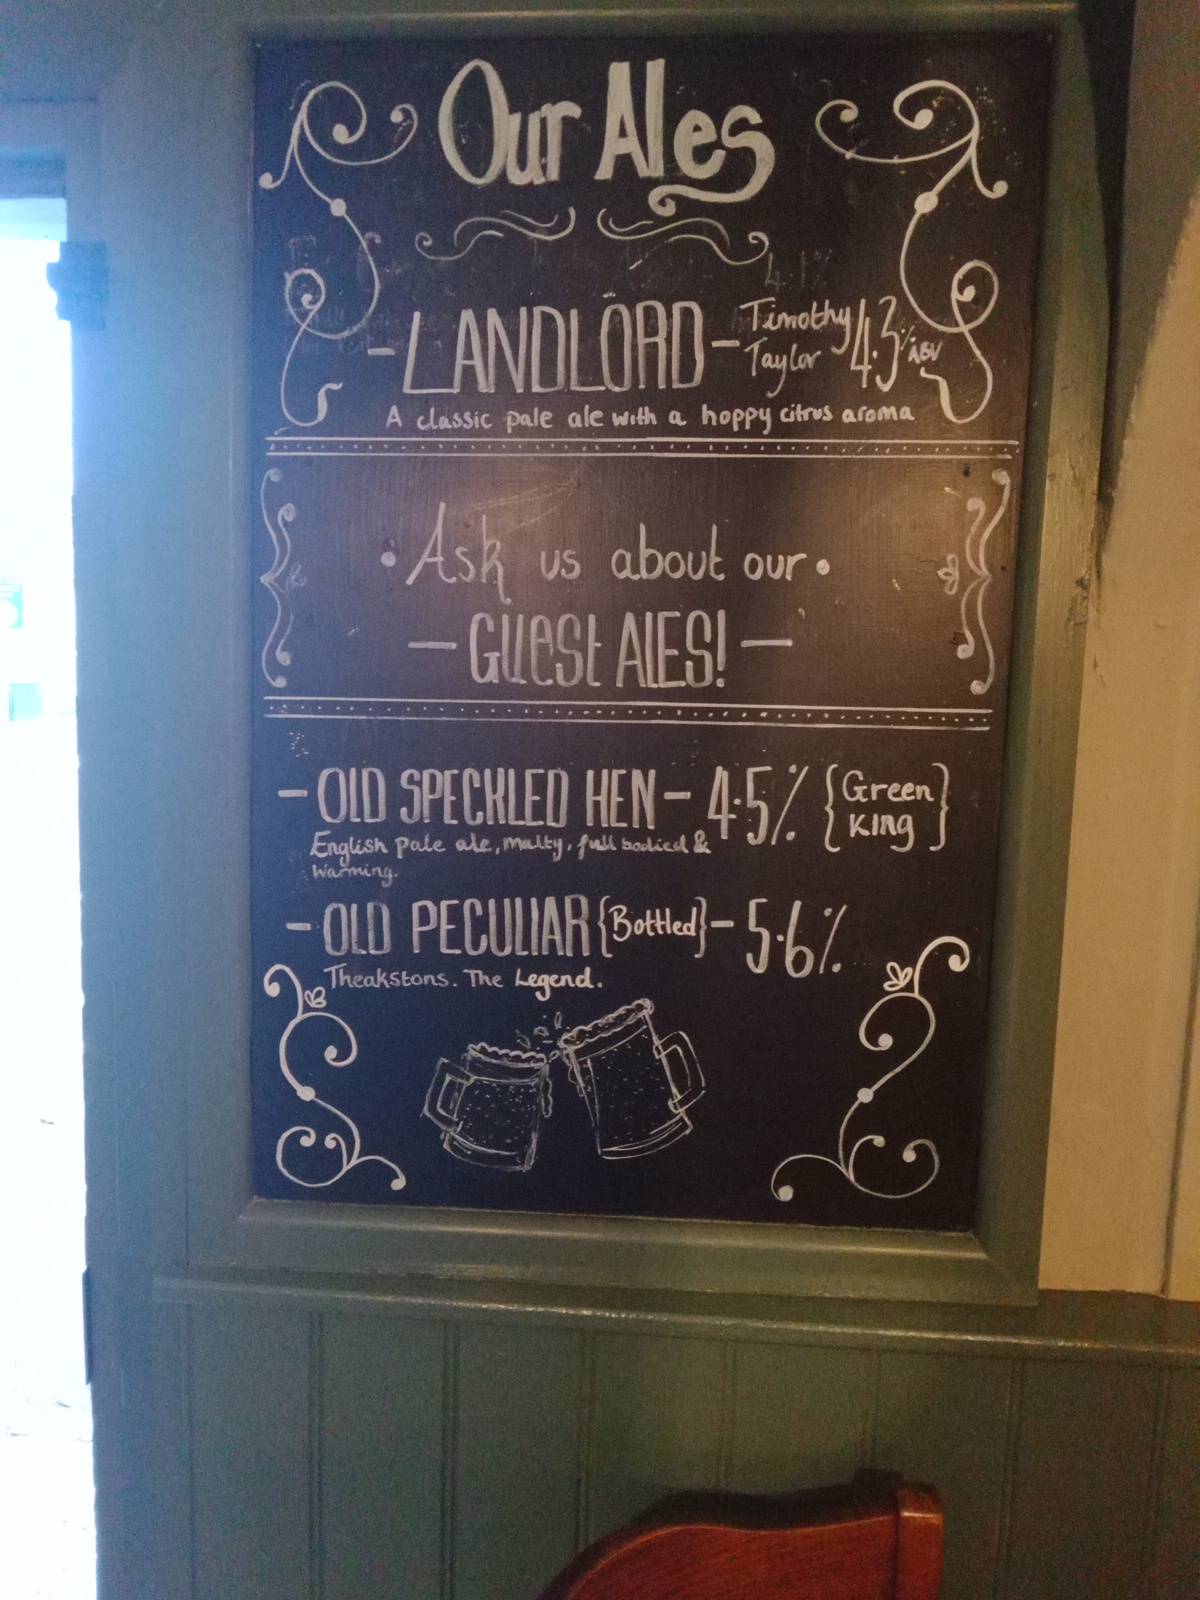 Our Ales
4.1%
- LANDLORD - Timothy Taylor 4.3% ABV
A classic pale ale with a hoppy citrus aroma
• Ask us about our •
- GUEST ALES! -
- OLD SPECKLED HEN - 4.5% {Green King}
English pale ale, malty, full bodied &
warming.
- OLD PECULIAR {Bottled} - 5.6%
Theakstons. The Legend.